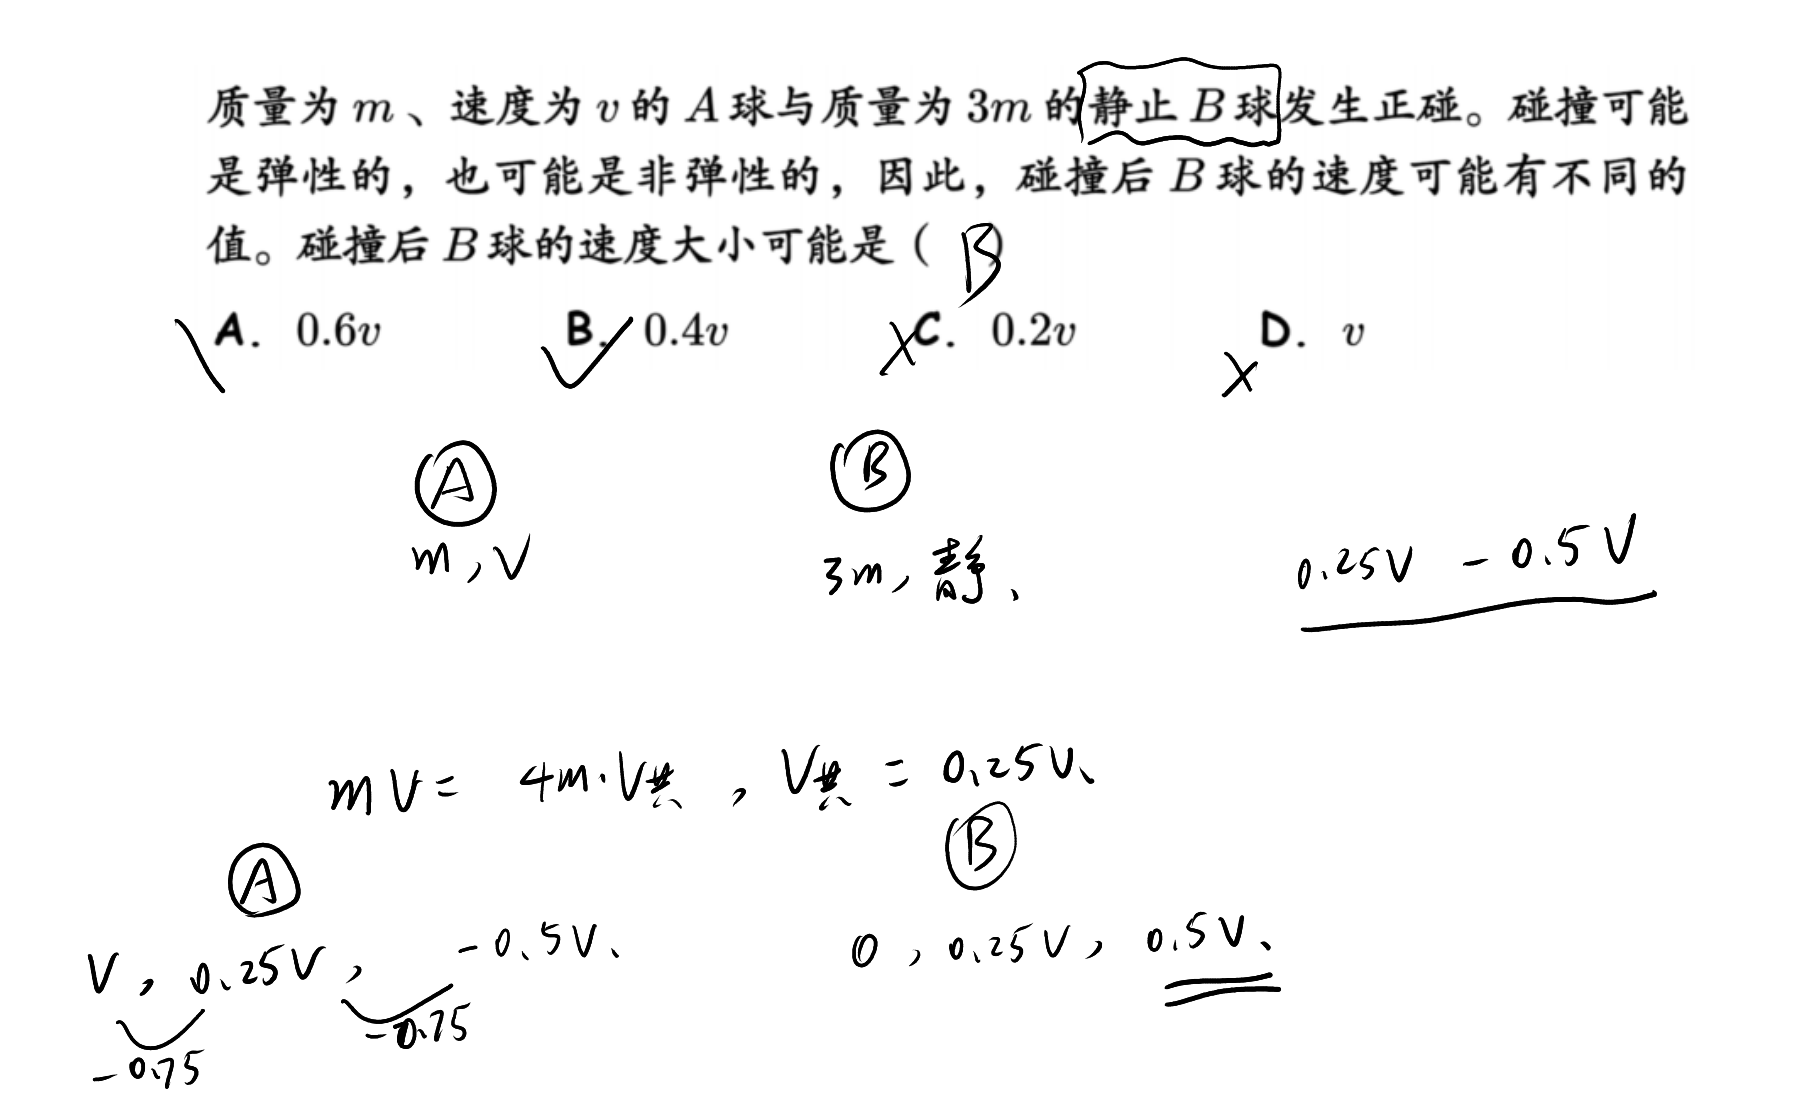 质量为 m 、速度为 v 的 A 球与质量为 3m 的静止 B 球发生正碰。碰撞可能
是弹性的，也可能是非弹性的，因此，碰撞后 B 球的速度可能有不同的
值。碰撞后 B 球的速度大小可能是（ B ）
A. 0.6v B. 0.4v C. 0.2v D. v
A B
m, V 3m, 静、 0.25V - 0.5V
mV = 4m·V共 , V共 = 0.25V、
A B
V, 0.25V, -0.5V、 0, 0.25V, 0.5V、
-0.75 -0.75